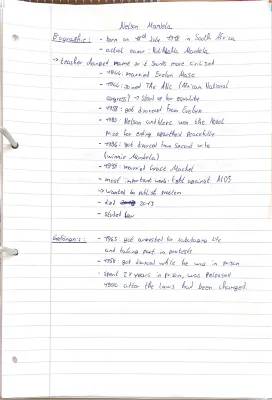 Nelson Mandela
Biographie: - born on 18th July 1918 in South Africa
- actual name: Rolihlahla Mandela
→ teacher changed name so it sounds more civilized
- 1944: married Evelyn Mase
- 1944: joined The ANC (African National
Congress) → Stood up for equality
- 1958: got divorced from Evelyn
- 1993: Nelson and Klerk won the Nobel
Prize for ending apartheid peacefully
- 1996: got divorced from second wife
(Winnie Mandela)
- 1998: married Graca Machel
- most important work: fight against AIDS
→ wanted to publish problem
- 2013
Gefängnis: - 1963: got arrested for sabotage life
and taking part in protests
- 1958: got divorced while he was in prison
- spent 27 years in prison, was released
1990 after the laws had been changed.